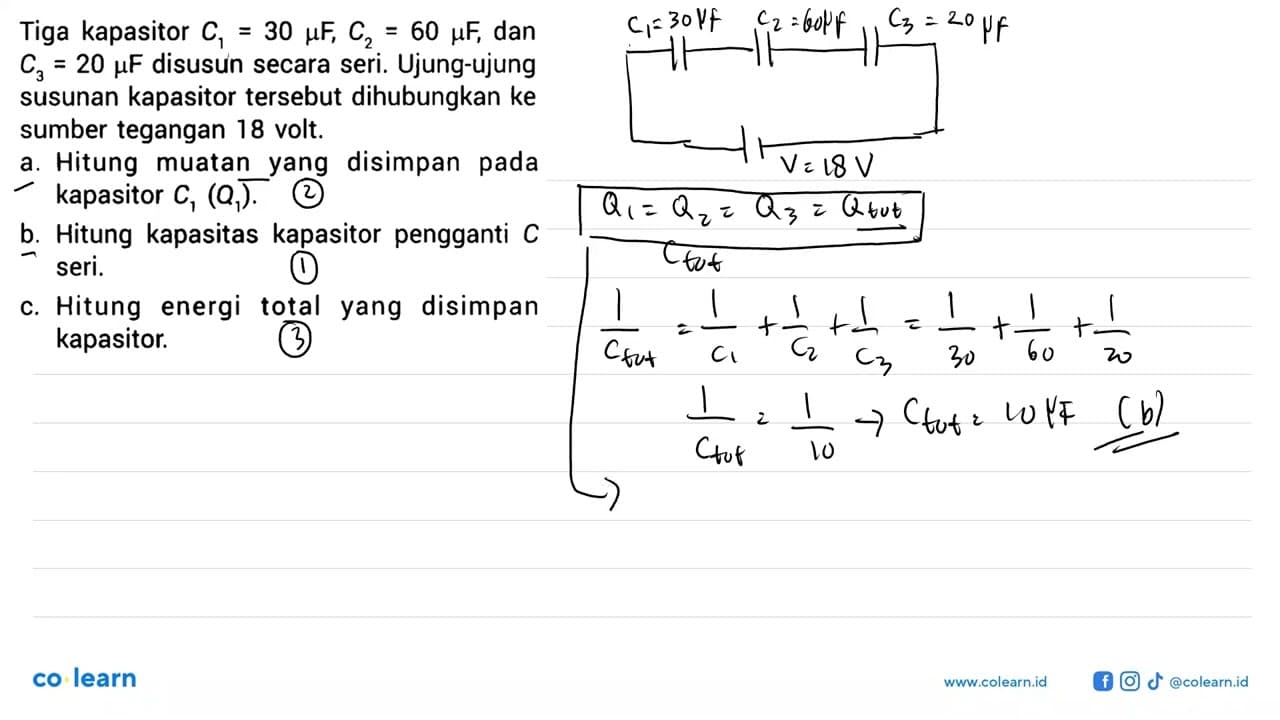 Tiga kapasitor C₁ = 30 μF, C₂ = 60 μF, dan
C₃ = 20 μF disusun secara seri. Ujung-ujung
susunan kapasitor tersebut dihubungkan ke
sumber tegangan 18 volt.
a. Hitung muatan yang disimpan pada
kapasitor C₁ (Q₁). ②
b. Hitung kapasitas kapasitor pengganti C
seri. ①
c. Hitung energi total yang disimpan
kapasitor. ③
C₁ = 30 μF C₂ = 60 μF C₃ = 20 μF
V = 18 V
Q₁ = Q₂ = Q₃ = Qtot
Ctot
1/Ctot = 1/C₁ + 1/C₂ + 1/C₃ = 1/30 + 1/60 + 1/20
1/Ctot = 1/10 → Ctot = 10 μF (b)
co learn
www.colearn.id
@colearn.id